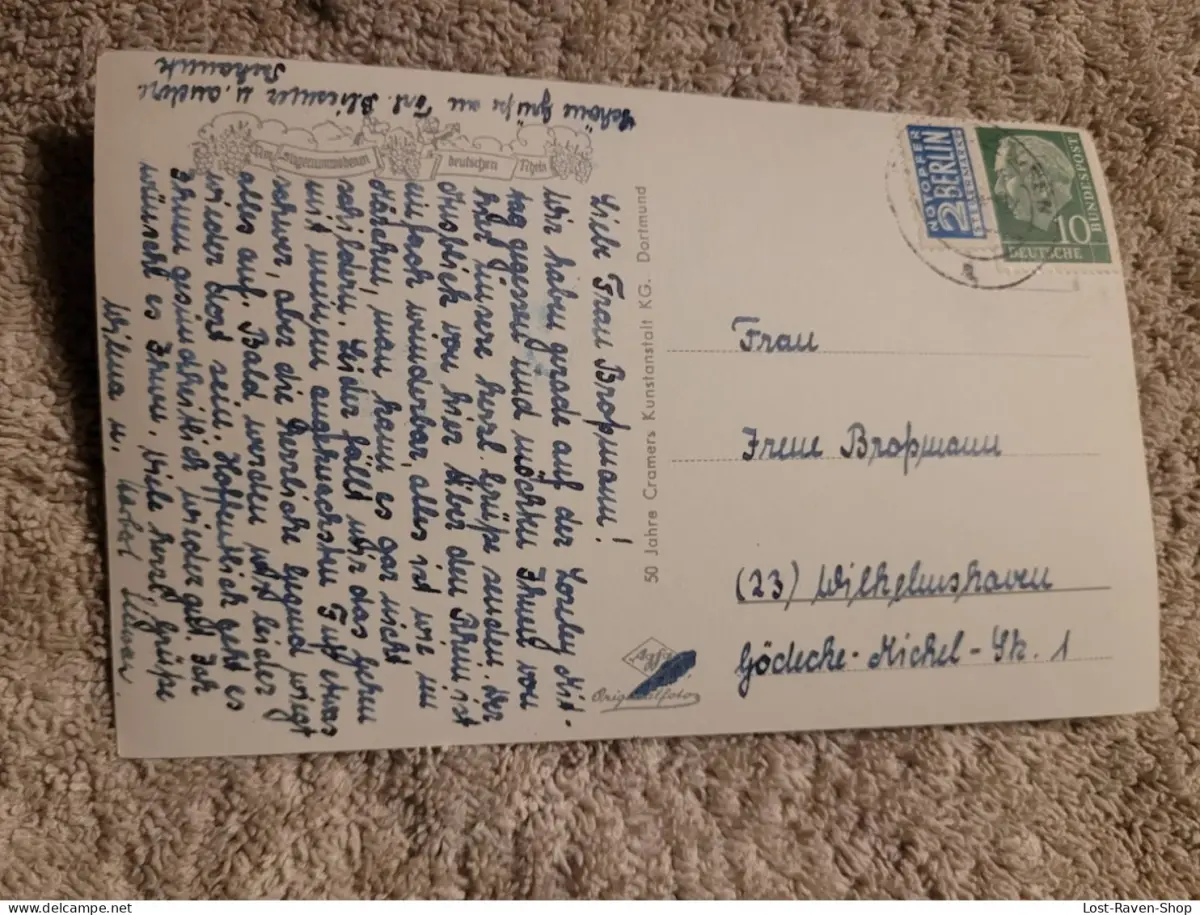 Schöne Grüße an Frl. u. andere
Bekannte
Vom sagenumwobenen deutschen Rhein
Liebe Frau Broßmann!
Wir haben grade auf der Loreley Mit-
tag gegessen und möchten Ihnen von
hier unsere herzl. Grüße senden. Der
Ausblick von hier über den Rhein ist
einfach wunderbar, alles ist wie im
Märchen, man kann es gar nicht
schildern. Leider fällt mir das Gehen
mit meinem angeknacksten Fuß etwas
schwer, aber die herrliche Gegend wiegt
alles auf. Bald werden wir leider
wieder dort sein. Hoffentlich geht es
Ihnen gesundheitlich wieder gut. Ich
wünscht es Ihnen. Viele herzl. Grüße
Wilma u.
50 Jahre Cramers Kunstanstalt KG. Dortmund
Agfa
Originalfoto
NOTOPFER
2 BERLIN
STEUERMARKE
10
DEUTSCHE
BUNDESPOST
Frau
Irene Broßmann
(23) Wilhelmshaven
Gödecke-Michel-Str. 1
Lost-Raven-Shop